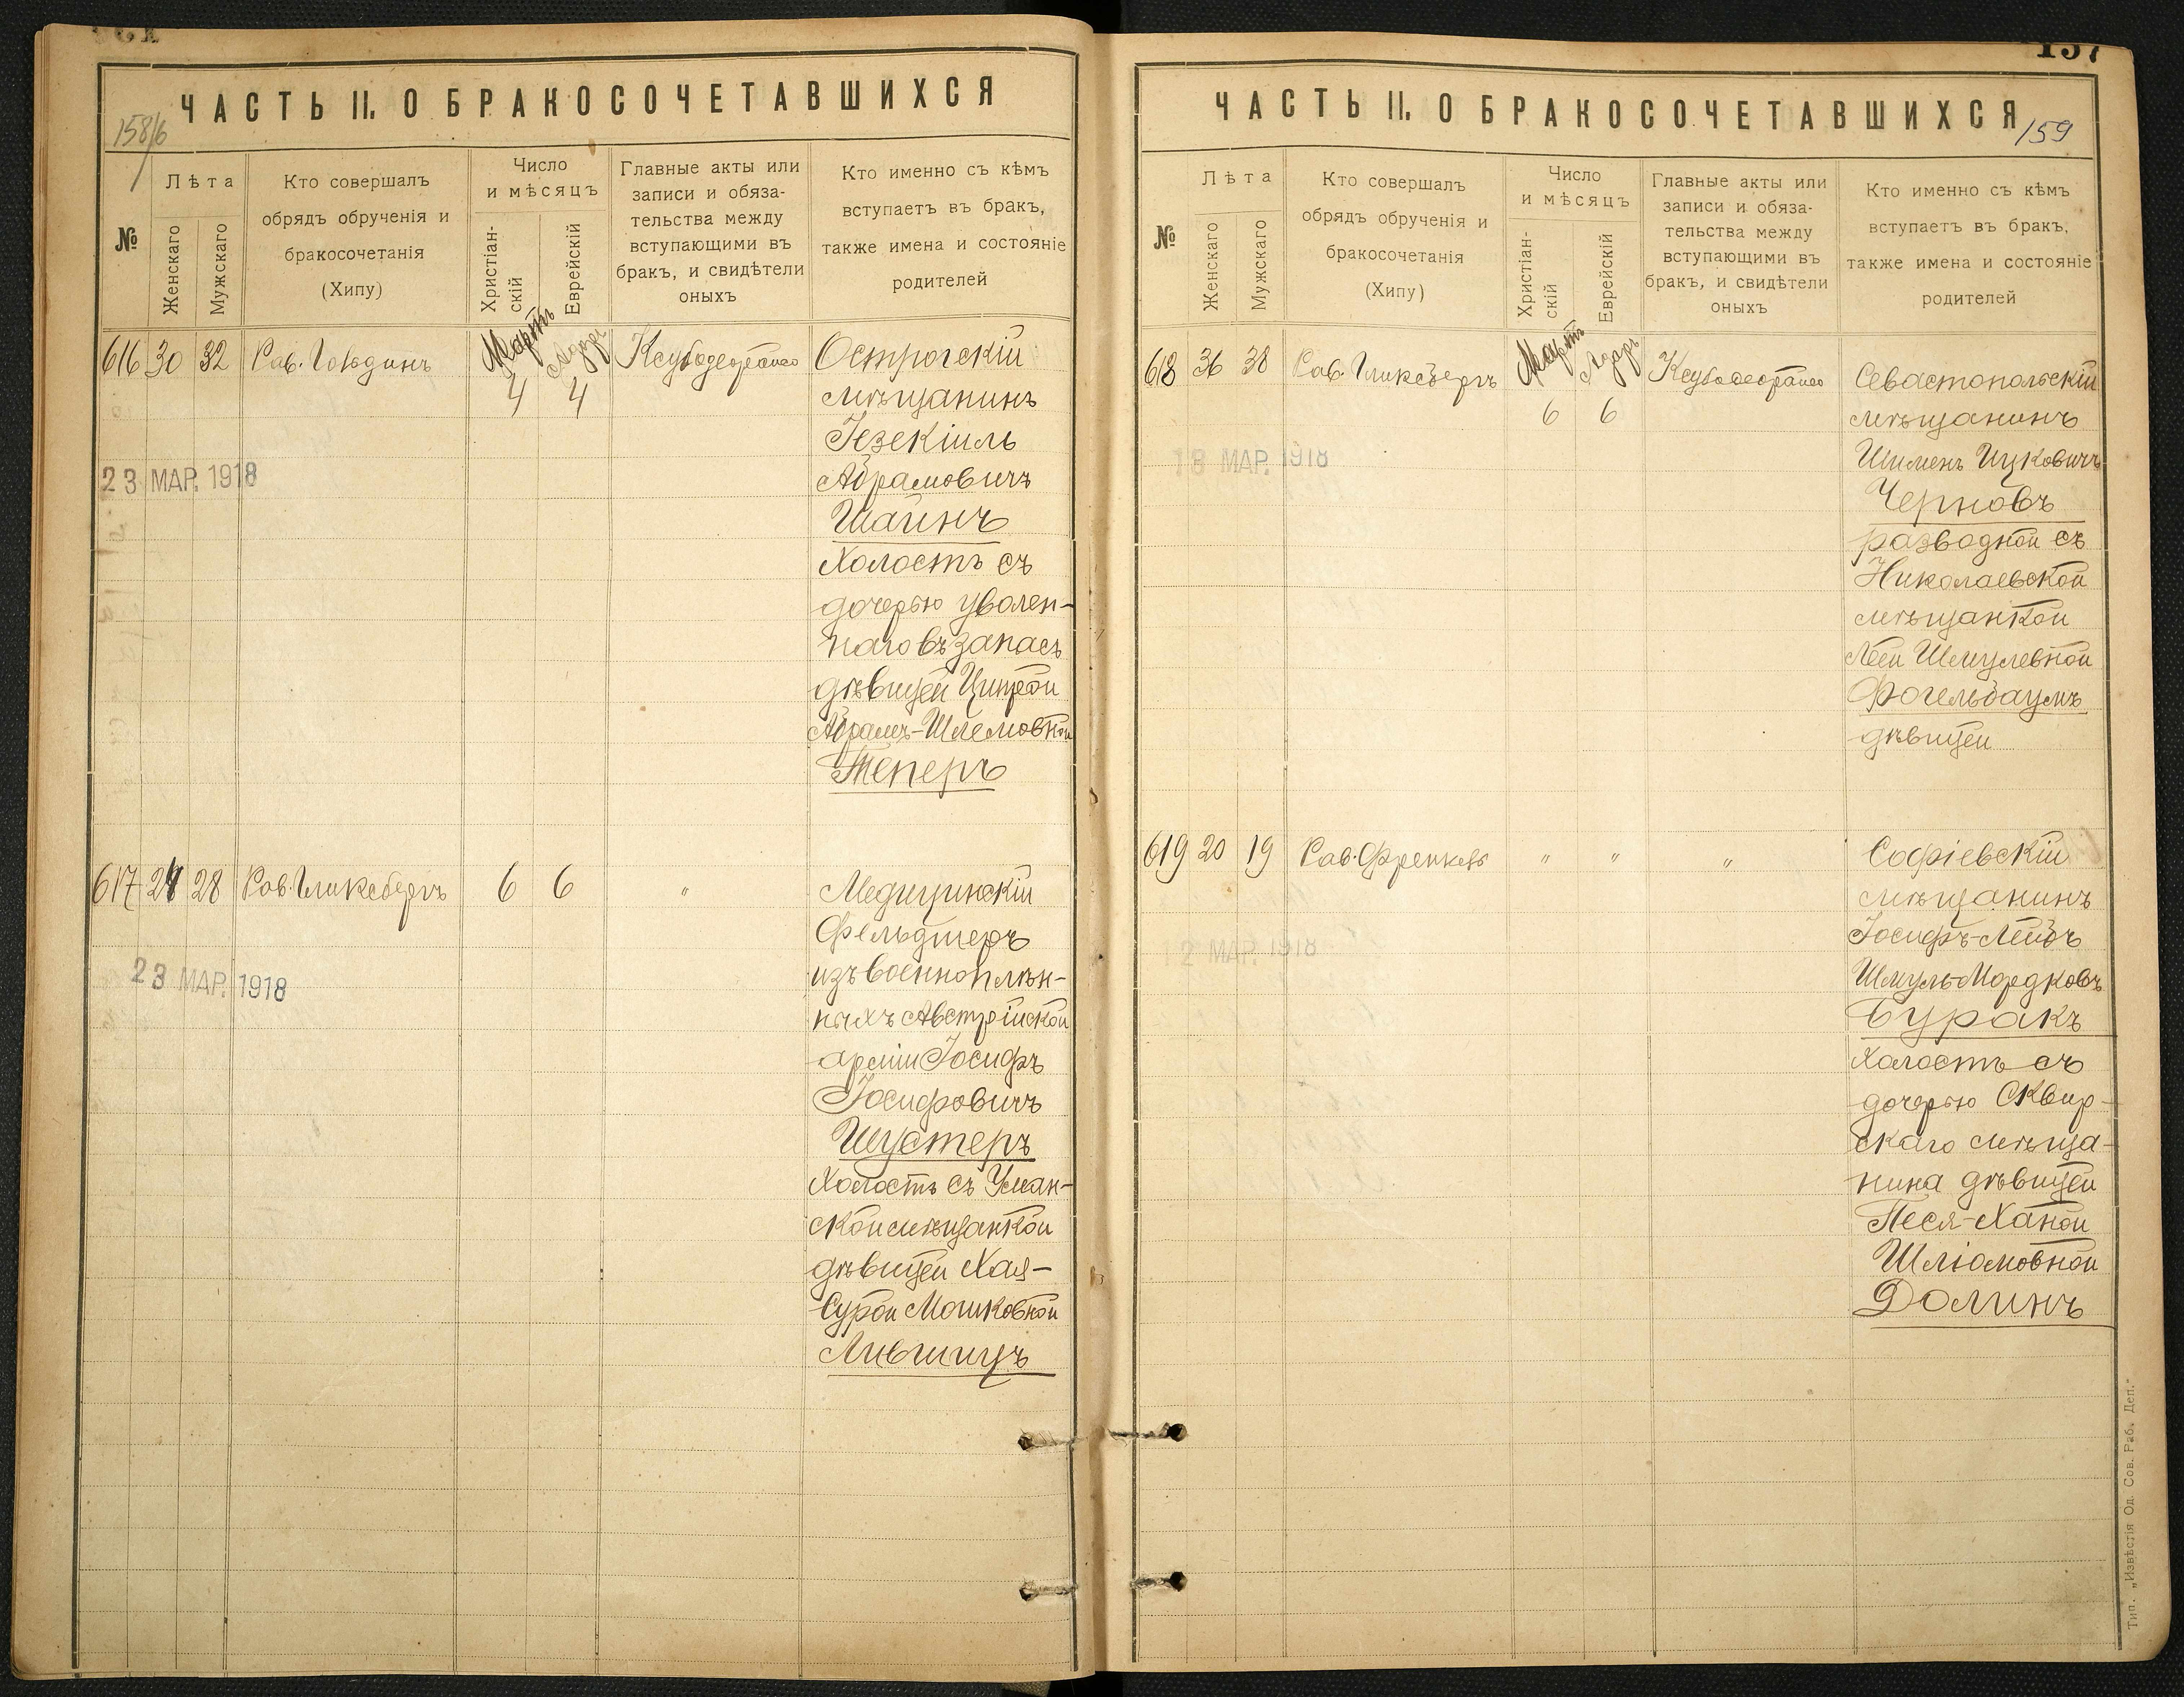 ЧАСТЬ II. О БРАКОСОЧЕТАВШИХСЯ
158/6
№
Лѣта
Женскаго
Мужскаго
Кто совершалъ
обрядъ обрученія и
бракосочетанія
(Хипу)
Число
и мѣсяцъ
Христіан-
скій
Еврейскій
Главные акты или
записи и обяза-
тельства между
вступающими въ
бракъ, и свидѣтели
оныхъ
Кто именно съ кѣмъ
вступаетъ въ бракъ,
также имена и состояніе
родителей
616 30 32 Рав. Гольдинъ
Мартъ 4
Адаръ 4
Острогскій
мѣщанинъ
Іезекіиль
Абрамовичъ
Шаинъ
Холостъ съ
дочерью уволен-
наго въ запасъ
дѣвицей Ципрой
Абрамъ-Шлемовной
Теперъ
23 МАР. 1918
617 24 28 Рав. Гликсбергъ 6 6 "
Медицинскій
Фельдшеръ
изъ военноплѣн-
ныхъ Австрійской
арміи Іосифъ
Іосифовичъ
Шустеръ
Холостъ съ Уман-
ской мѣщанкой
дѣвицей Хая-
Сурой Мошковной
Лившицъ
23 МАР. 1918
157
ЧАСТЬ II. О БРАКОСОЧЕТАВШИХСЯ
159
№
Лѣта
Женскаго
Мужскаго
Кто совершалъ
обрядъ обрученія и
бракосочетанія
(Хипу)
Число
и мѣсяцъ
Христіан-
скій
Еврейскій
Главные акты или
записи и обяза-
тельства между
вступающими въ
бракъ, и свидѣтели
оныхъ
Кто именно съ кѣмъ
вступаетъ въ бракъ,
также имена и состояніе
родителей
618 36 38 Рав. Гликсбергъ
Мартъ 6
Адаръ 6
Севастопольскій
мѣщанинъ
Шименъ Ицковичъ
Черновъ
разводной съ
Николаевской
мѣщанкой
Леей Шмулевной
Фогельбаумъ
дѣвицей
18 МАР. 1918
619 20 19 Рав. Френкель " " "
Софіевскій
мѣщанинъ
Іосифъ-Лейбъ
Шмуль-Мордковъ
Буракъ
Холостъ съ
дочерью Сквир-
скаго мѣща-
нина дѣвицей
Песя-Ханой
Шліомовной
Долинъ
12 МАР. 1918
Тип. „Извѣстія Од. Сов. Раб. Деп.“